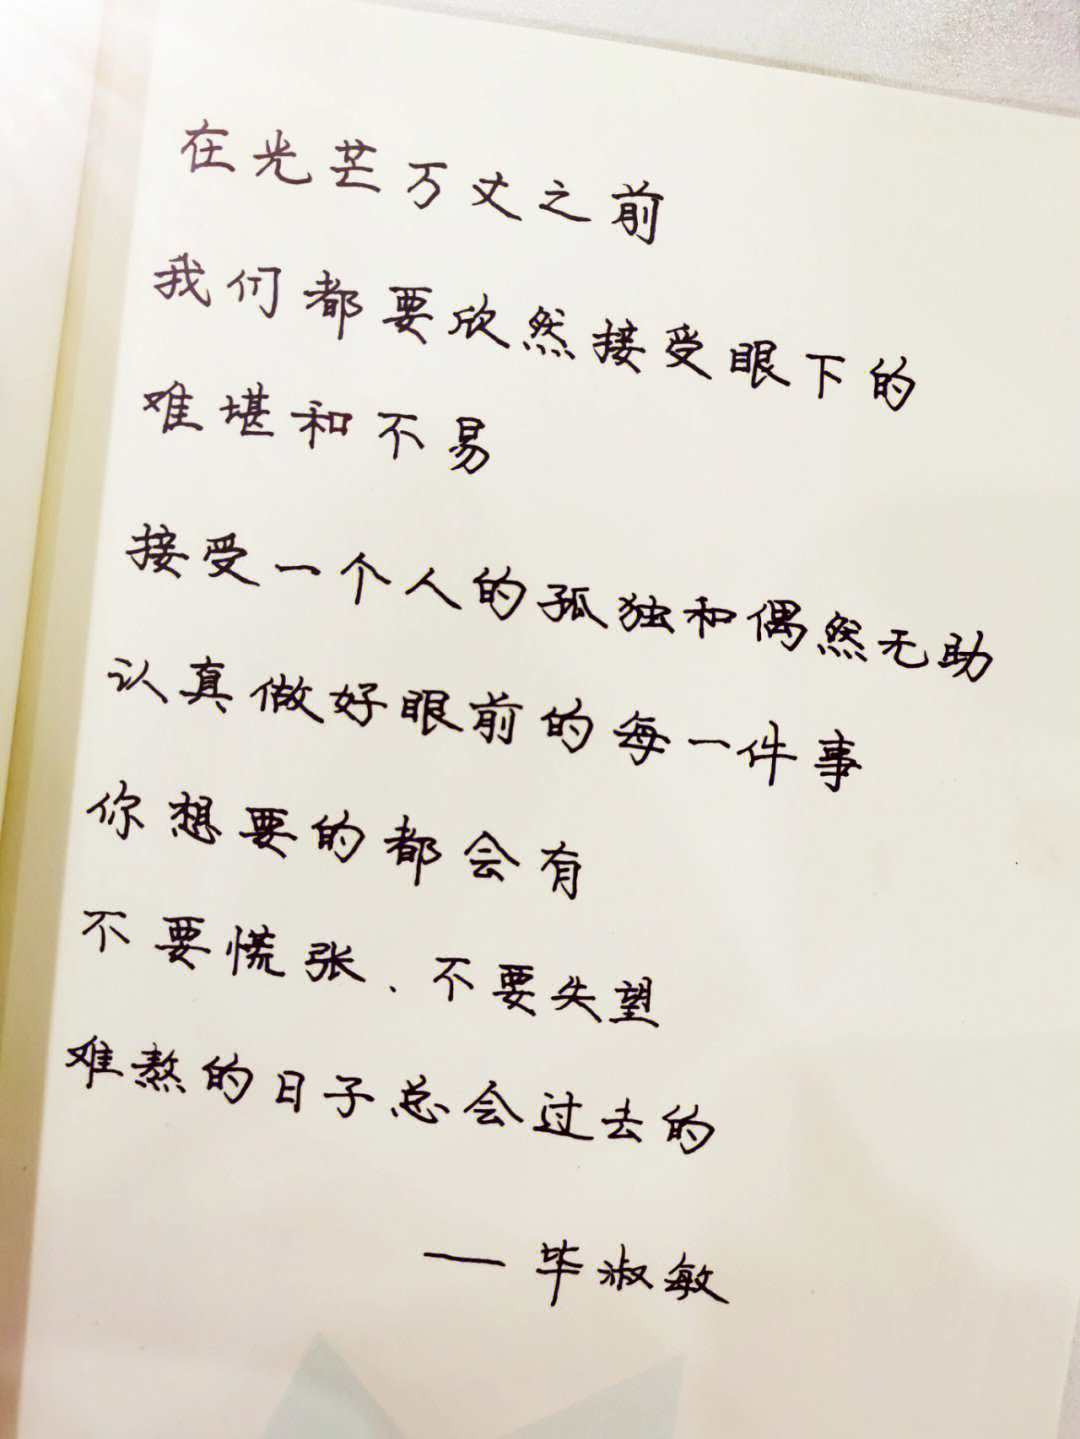 在光芒万丈之前
我们都要欣然接受眼下的
难堪和不易
接受一个人的孤独和偶然无助
认真做好眼前的每一件事
你想要的都会有
不要慌张、不要失望
难熬的日子总会过去的
—毕淑敏